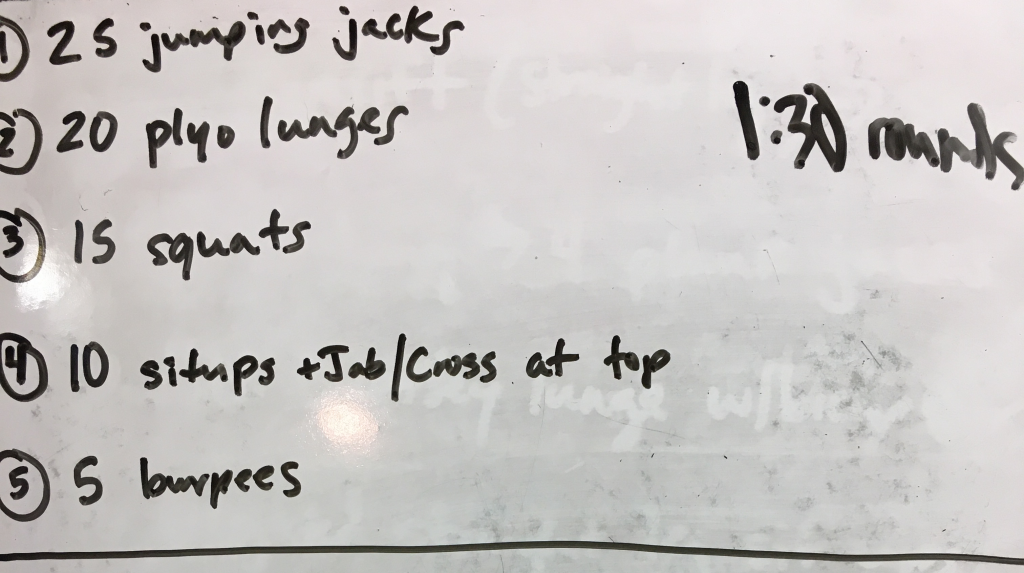 ① 25 jumping jacks
② 20 plyo lunges
1:30 rounds
③ 15 squats
④ 10 situps + Jab/Cross at top
⑤ 5 burpees